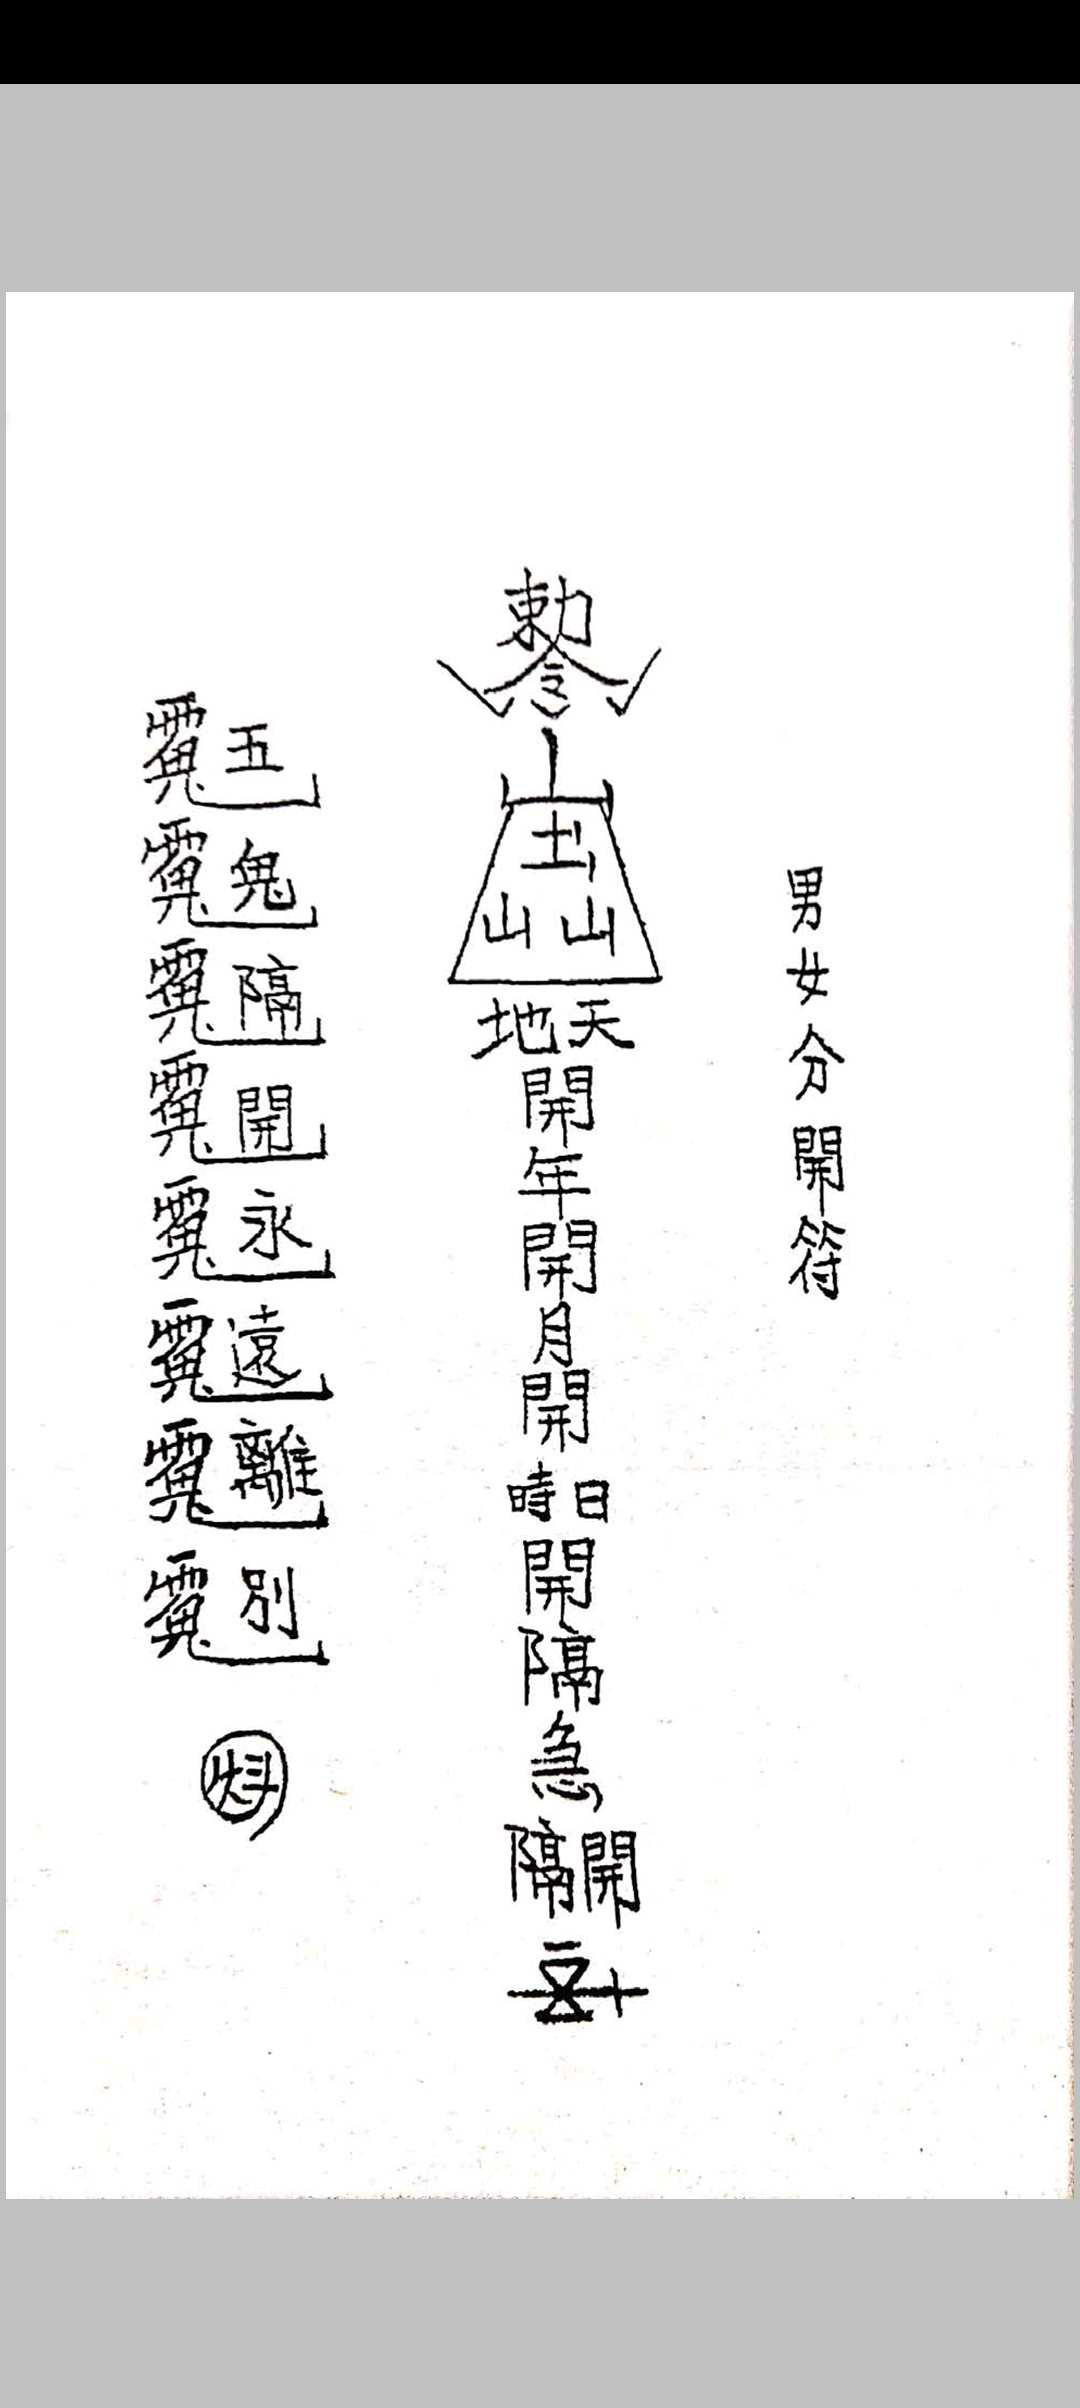 男女分開符
勅令
山
土
山山
天地
開年開月開
日時
開隔急
開隔
五鬼隔開永遠離別